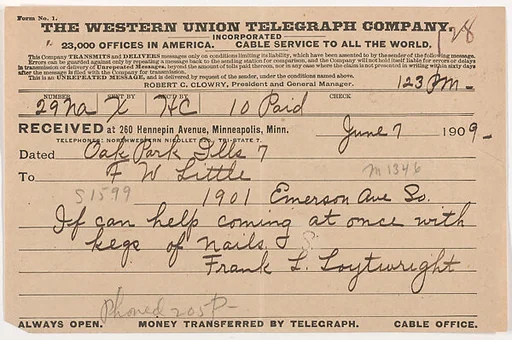 Form No. 1.
THE WESTERN UNION TELEGRAPH COMPANY.
INCORPORATED
23,000 OFFICES IN AMERICA. CABLE SERVICE TO ALL THE WORLD.
This Company TRANSMITS and DELIVERS messages only on conditions limiting its liability, which have been assented to by the sender of the following message.
Errors can be guarded against only by repeating a message back to the sending station for comparison, and the Company will not hold itself liable for errors or delays
in transmission or delivery of Unrepeated Messages, beyond the amount of tolls paid thereon, nor in any case where the claim is not presented in writing within sixty days
after the message is filed with the Company for transmission.
This is an UNREPEATED MESSAGE, and is delivered by request of the sender, under the conditions named above.
ROBERT C. CLOWRY, President and General Manager.
28
123 PM
NUMBER SENT BY REC'D BY CHECK
29 Na X HC 10 Paid
RECEIVED at 260 Hennepin Avenue, Minneapolis, Minn.
June 7 1909
TELEPHONES: NORTHWESTERN NICOLLET TRI-STATE 7.
Dated Oak Park Ills 7
To F W Little
M 1346
S 1599
1901 Emerson Ave So.
If can help coming at once with
kegs of nails
Frank L. Loytwright
Phoned 205 P
ALWAYS OPEN. MONEY TRANSFERRED BY TELEGRAPH. CABLE OFFICE.